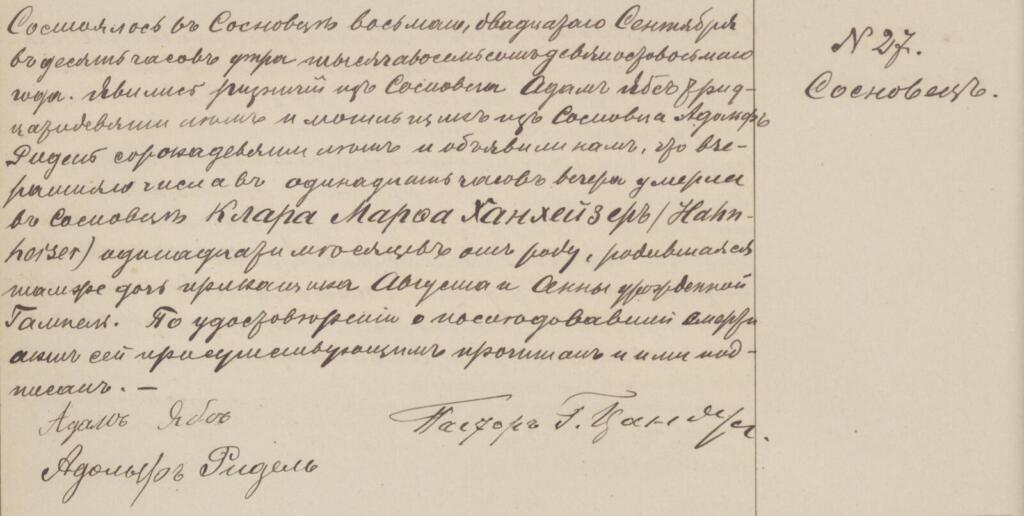 Состоялось въ Сосновцѣ восьмаго, двадцатаго Сентября
въ десять часовъ утра тысяча восемьсотъ девяностовосьмаго
года. Явились рѣзничій изъ Сосновца Адамъ Ябсъ трид-
цатидевяти лѣтъ и могильщикъ изъ Сосновца Адольфъ
Ридель сорокадевяти лѣтъ и объявили намъ, что вче-
рашняго числа въ одинадцать часовъ вечера умерла
въ Сосновцѣ Клара Марѳа Ханхейзеръ (Hahn-
heiser) одинадцати мѣсяцевъ отъ роду, родившаяся
тамже дочь прикащика Августа и Анны урожденной
Гампель. По удостовѣреніи о послѣдовавшей смерти
актъ сей присутствующимъ прочитанъ и ими под-
писанъ. —
Адамъ Ябсъ
Пасторъ Г. Цандеръ.
Адольфъ Ридель
N 27.
Сосновецъ.